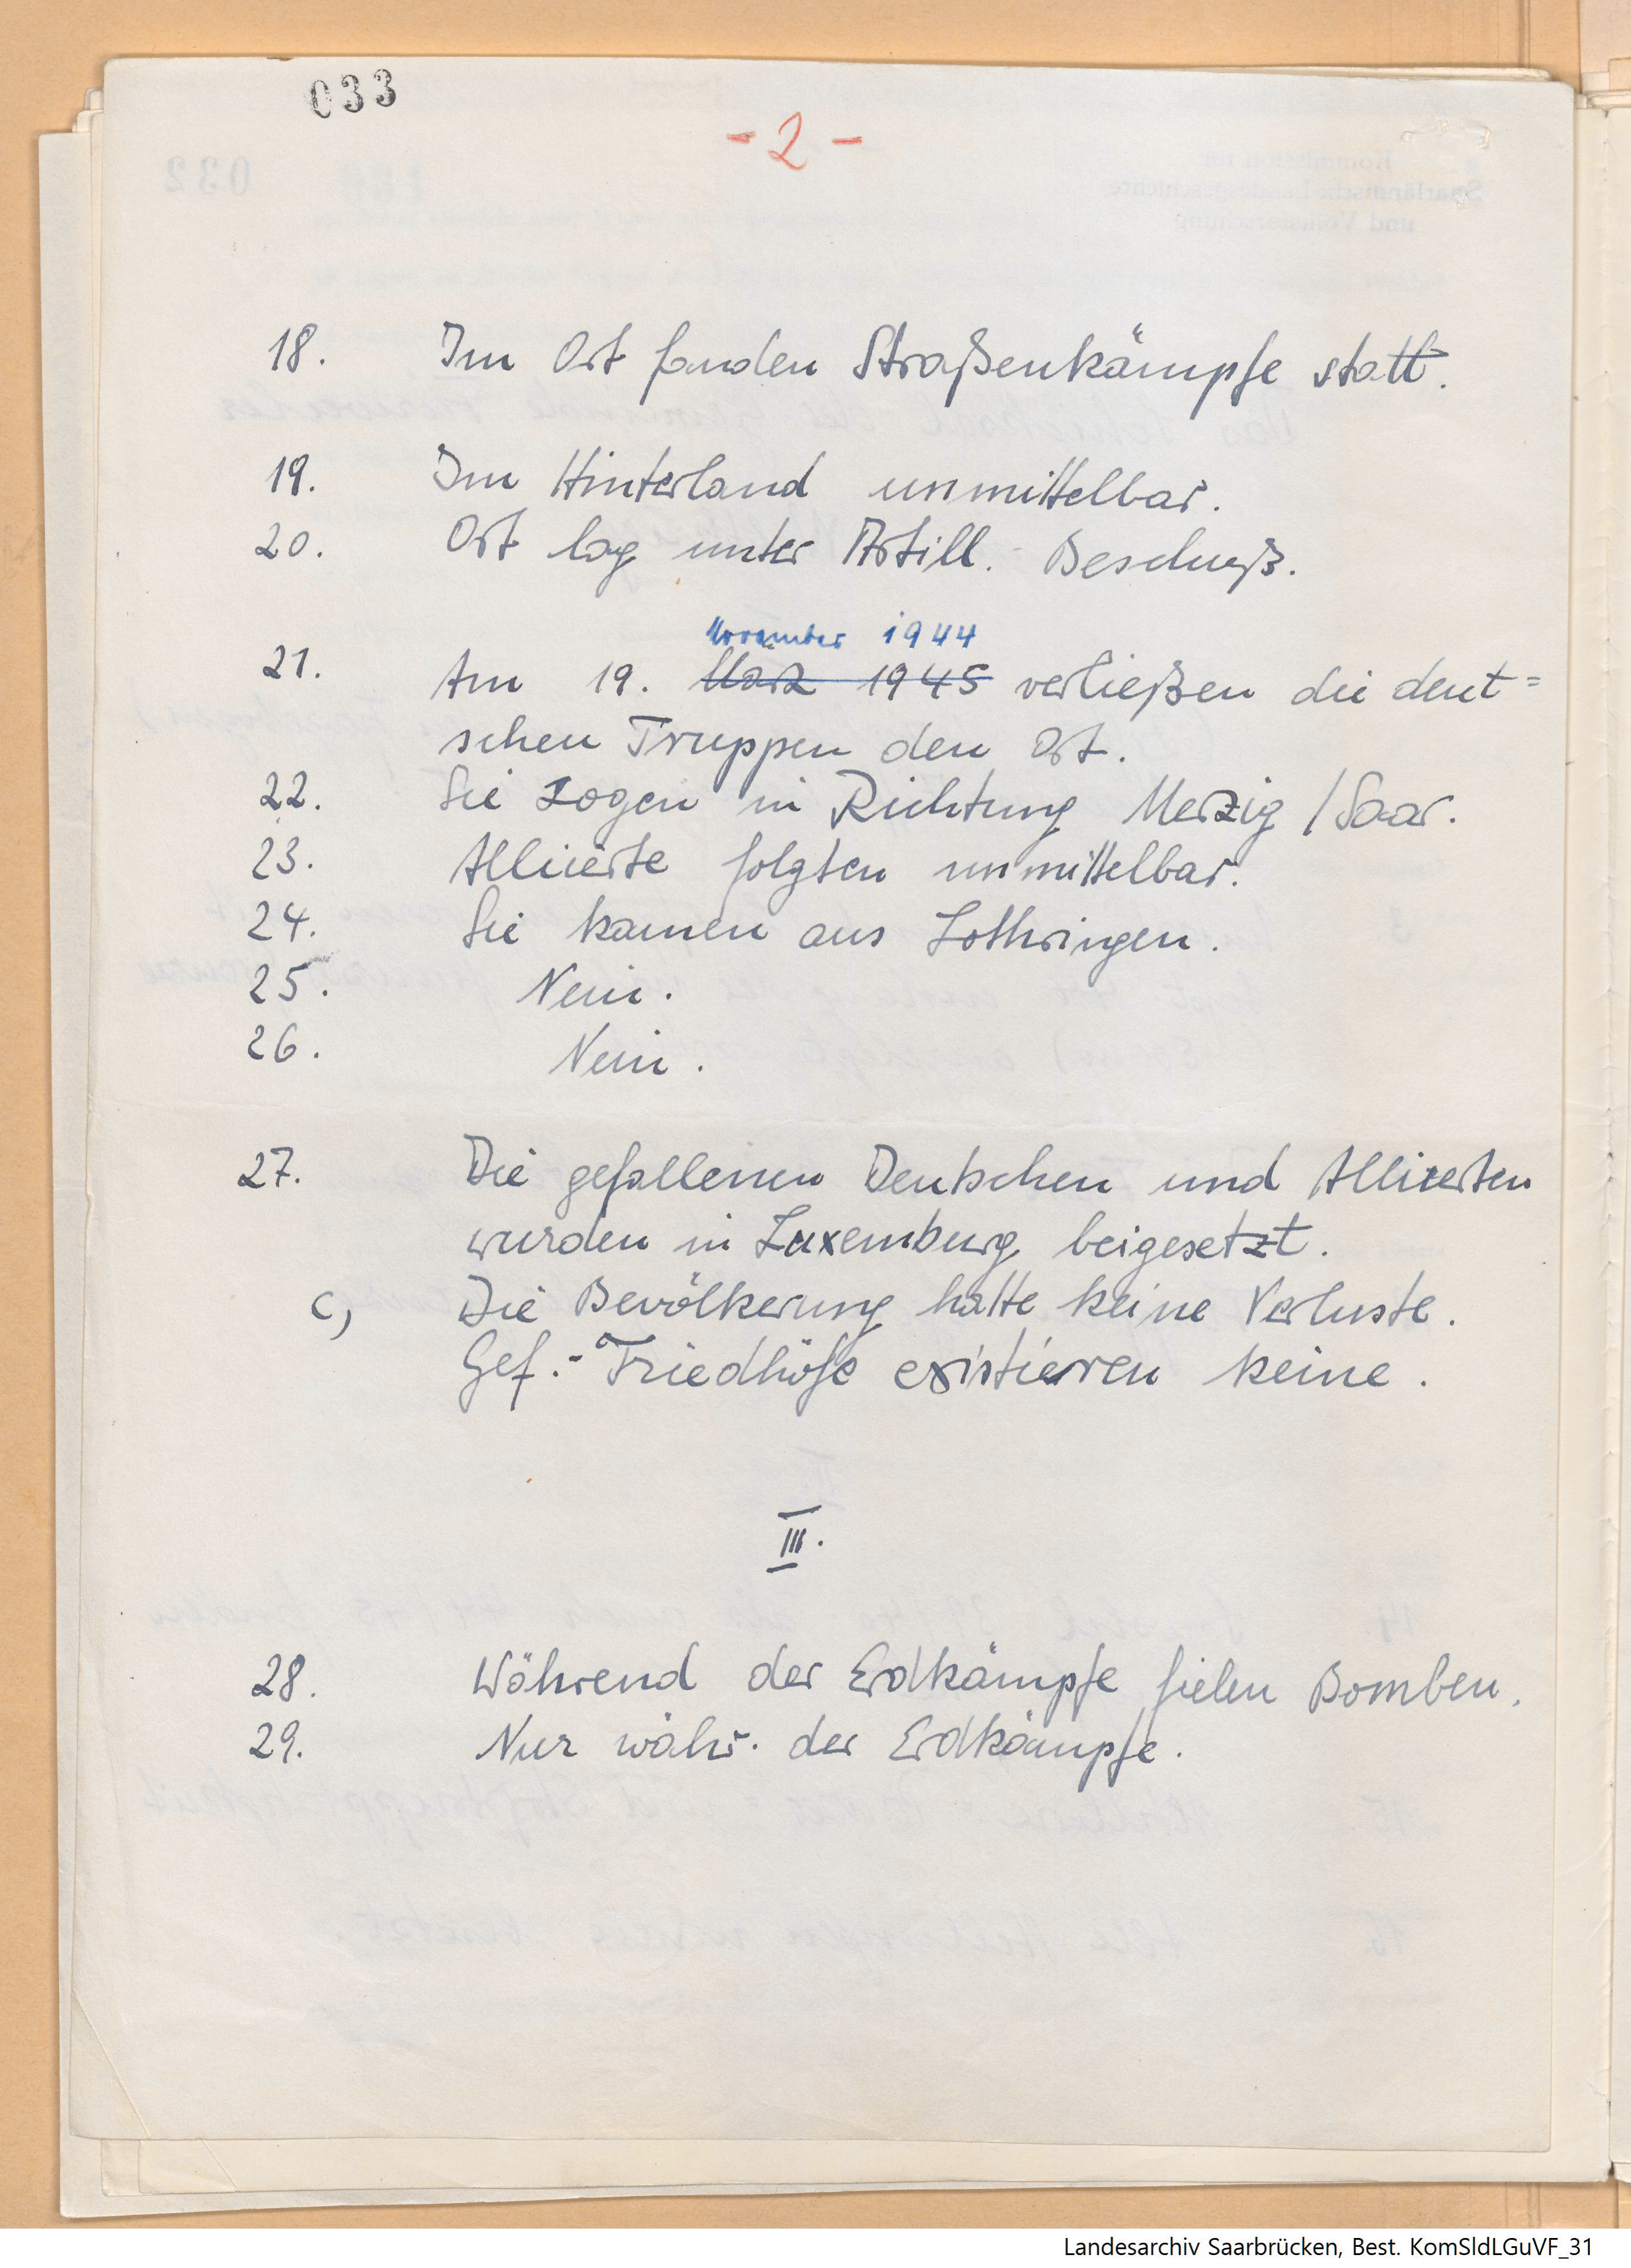 033
- 2 -
18. Im Ort fanden Straßenkämpfe statt.
19. Im Hinterland unmittelbar.
20. Ort lag unter Artill. - Beschuß.
November 1944
21. Am 19. März 1945 verließen die deut=
schen Truppen den Ort.
22. Sie zogen in Richtung Merzig / Saar.
23. Alliierte folgten unmittelbar.
24. Sie kamen aus Lothringen.
25. Nein.
26. Nein.
27. Die gefallenen Deutschen und Alliierten
wurden in Luxemburg beigesetzt.
c, Die Bevölkerung hatte keine Verluste.
Gef.-Friedhöfe existieren keine.
III.
28. Während der Erdkämpfe fielen Bomben.
29. Nur währ. der Erdkämpfe.
Landesarchiv Saarbrücken, Best. KomSldLGuVF_31